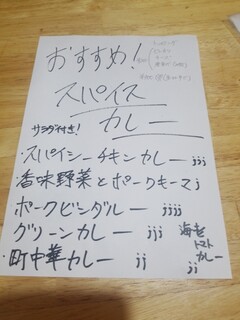 おすすめ!
スパイス
カレー
サラダ付き!
・スパイシーチキンカレー jjj
・香味野菜とポークキーマ j
・ポークビンダルー jjjj
・グリーンカレー jjj
・町中華カレー jj
海老
トマト
カレー
jj